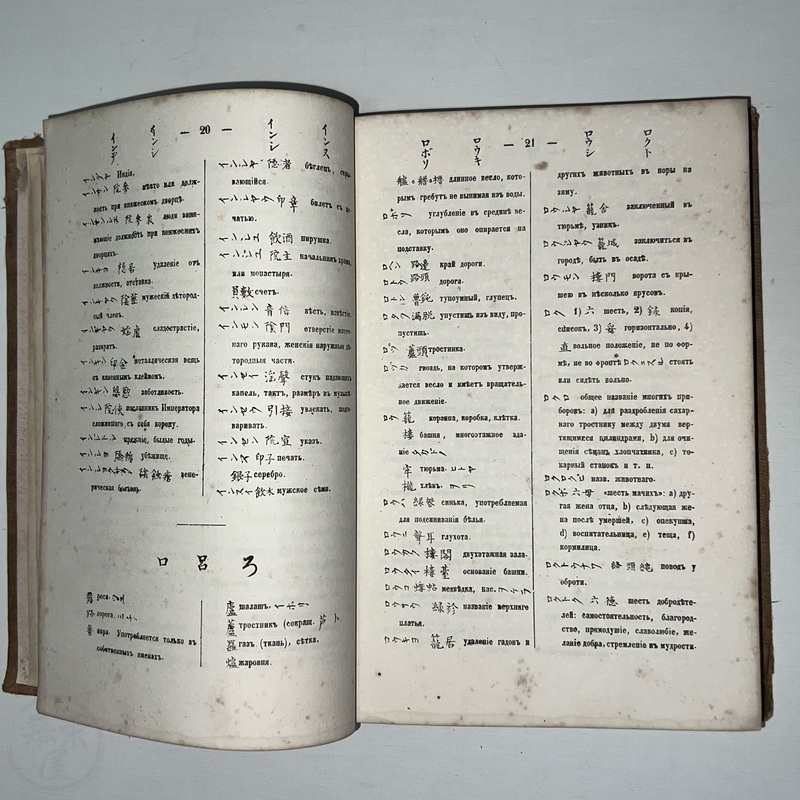 インデ インシ — 20 — インシ インス
Индія.
院參 мѣсто или долж-
ность при княжескомъ дворцѣ.
院參衆 люди зани-
мающіе должность при княжескихъ
дворцахъ.
隱居 удаленіе отъ
должности, отставка.
陰莖 мужескій дѣтород-
ный членъ.
婬虐 сладострастіе,
развратъ.
印金 металлическая вещь
съ казеннымъ клеймомъ.
慇懃 заботливость.
院使 посланникъ Императора
сложившаго съ себя корону.
прежніе, былые годы.
убѣжище.
вене-
рическая болѣзнь.
隱者 бѣглецъ, скры-
вающійся.
印章 билетъ съ пе-
чатью.
飲酒 пирушка.
院主 начальникъ храма
или монастыря.
員數 счетъ.
音信 вѣсть, извѣстіе.
陰門 отверстіе маточ-
наго рукава, женскія наружныя дѣ-
тородныя части.
стукъ падающихъ
капель, тактъ, размѣръ въ музыкѣ.
引接 увлекать, подго-
варивать.
院宣 указъ.
インス 印子 печать.
銀子 серебро.
мужское сѣмя.
ロ 呂 ろ
露 роса.
路 дорога. ミチ
вара. Употребляется только въ
собственныхъ именахъ.
廬 шалашъ. イホリ
蘆 тростникъ (сокращ. 芦)
羅 газъ (ткань), сѣтка.
爐 жаровня.
ロボリ ロウキ — 21 — ロウシ ロクト
длинное весло, кото-
рымъ гребутъ не вынимая изъ воды.
углубленіе въ срединѣ ве-
сла, которымъ оно опирается на
подставку.
路邊 край дороги.
路頭 дорога.
тупоумный, глупецъ.
漏脱 упустить изъ виду, про-
пустить.
蘆頭 тростника.
гвоздь, на которомъ утверж-
дается весло и имѣетъ вращатель-
ное движеніе.
ロウ 籠 корзина, коробка, клѣтка.
樓 башня, многоэтажное зда-
ніе
牢 тюрьма. ヒトヤ
хлѣвъ. ヲリ
синька, употребляемая
для подсиниванія бѣлья.
聾耳 глухота.
樓閣 двухэтажная зала.
樓臺 основаніе башни.
螻蛄 медвѣдка, нас.
названіе верхняго
платья.
ロウキヨ 籠居 удаленіе гадовъ и
другихъ животныхъ въ норы на
зиму.
ロウシヤ 籠舍 заключенный въ
тюрьмѣ, узникъ.
籠城 заключиться въ
городѣ, быть въ осадѣ.
ロウモン 樓門 ворота съ кры-
шею въ нѣсколько ярусовъ.
ロク 1) 六 шесть, 2) 録 копія,
списокъ, 3) горизонтально, 4)
直 вольное положеніе, не по фор-
мѣ, не во фронтѣ стоять
или сидѣть вольно.
ロクロ общее названіе многихъ при-
боровъ: a) для раздробленія сахар-
наго тростнику между двумя вер-
тящимися цилиндрами, b) для очи-
щенія сѣмянъ хлопчатника, c) то-
карный станокъ и т. п.
назв. животнаго.
六母 «шесть мачихъ»: a) дру-
гая жена отца, b) слѣдующая же-
на послѣ умершей, c) опекунша,
d) воспитательница, e) теща, f)
кормилица.
поводъ у
оброти.
ロクトク 六德 шесть добродѣте-
лей: самостоятельность, благород-
ство, прямодушіе, славолюбіе, же-
ланіе добра, стремленіе къ мудрости.